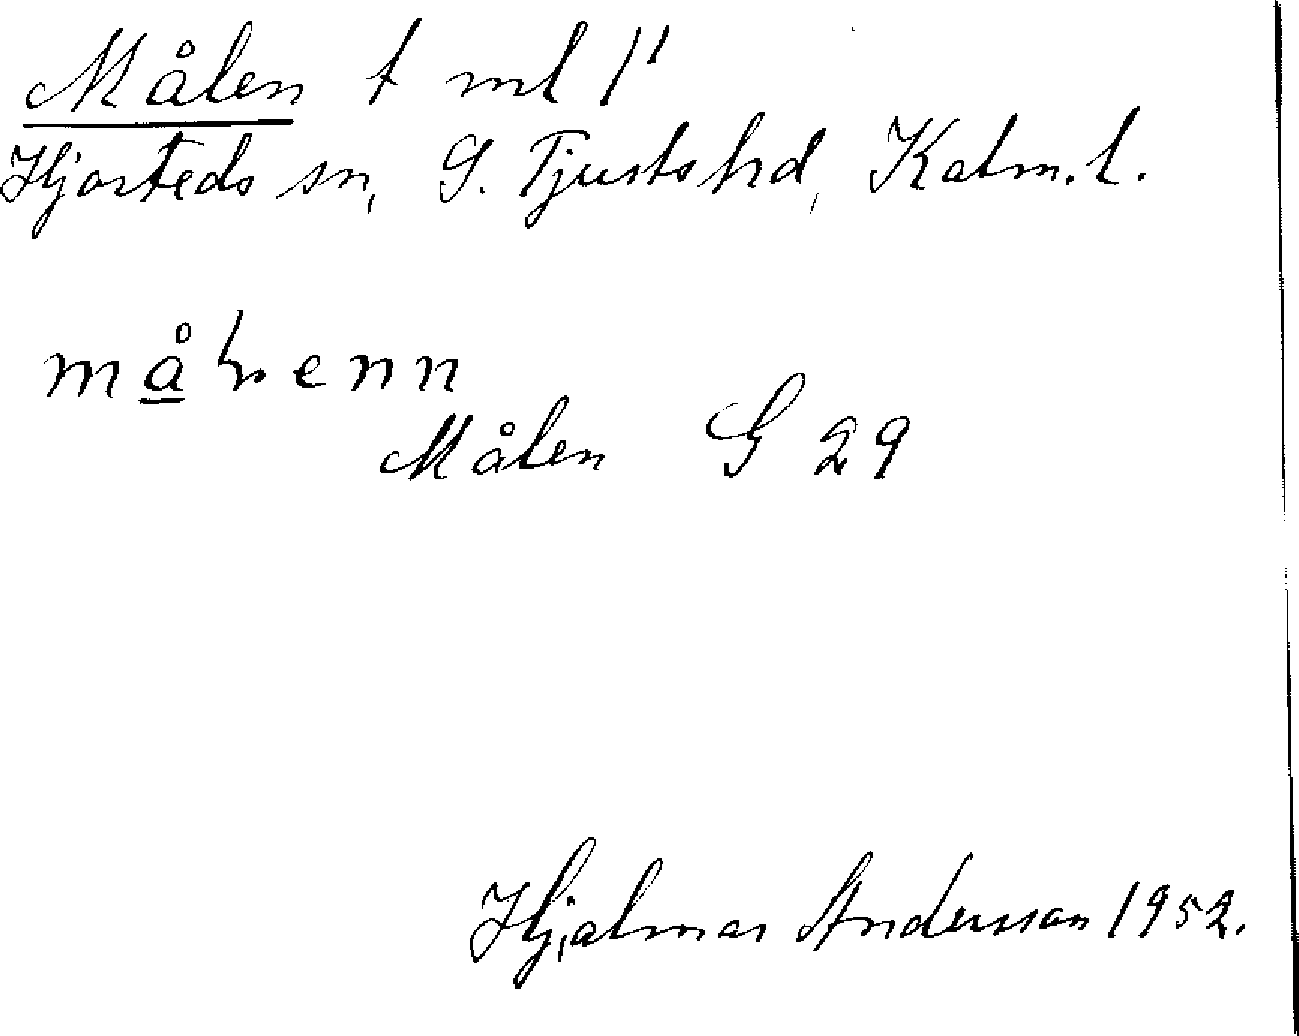 Målen t ml 1"
Hjorteds sn, S. Tjusts hd, Kalm. l.
målenn
Målen G 29
Hjalmar Andersson 1952.